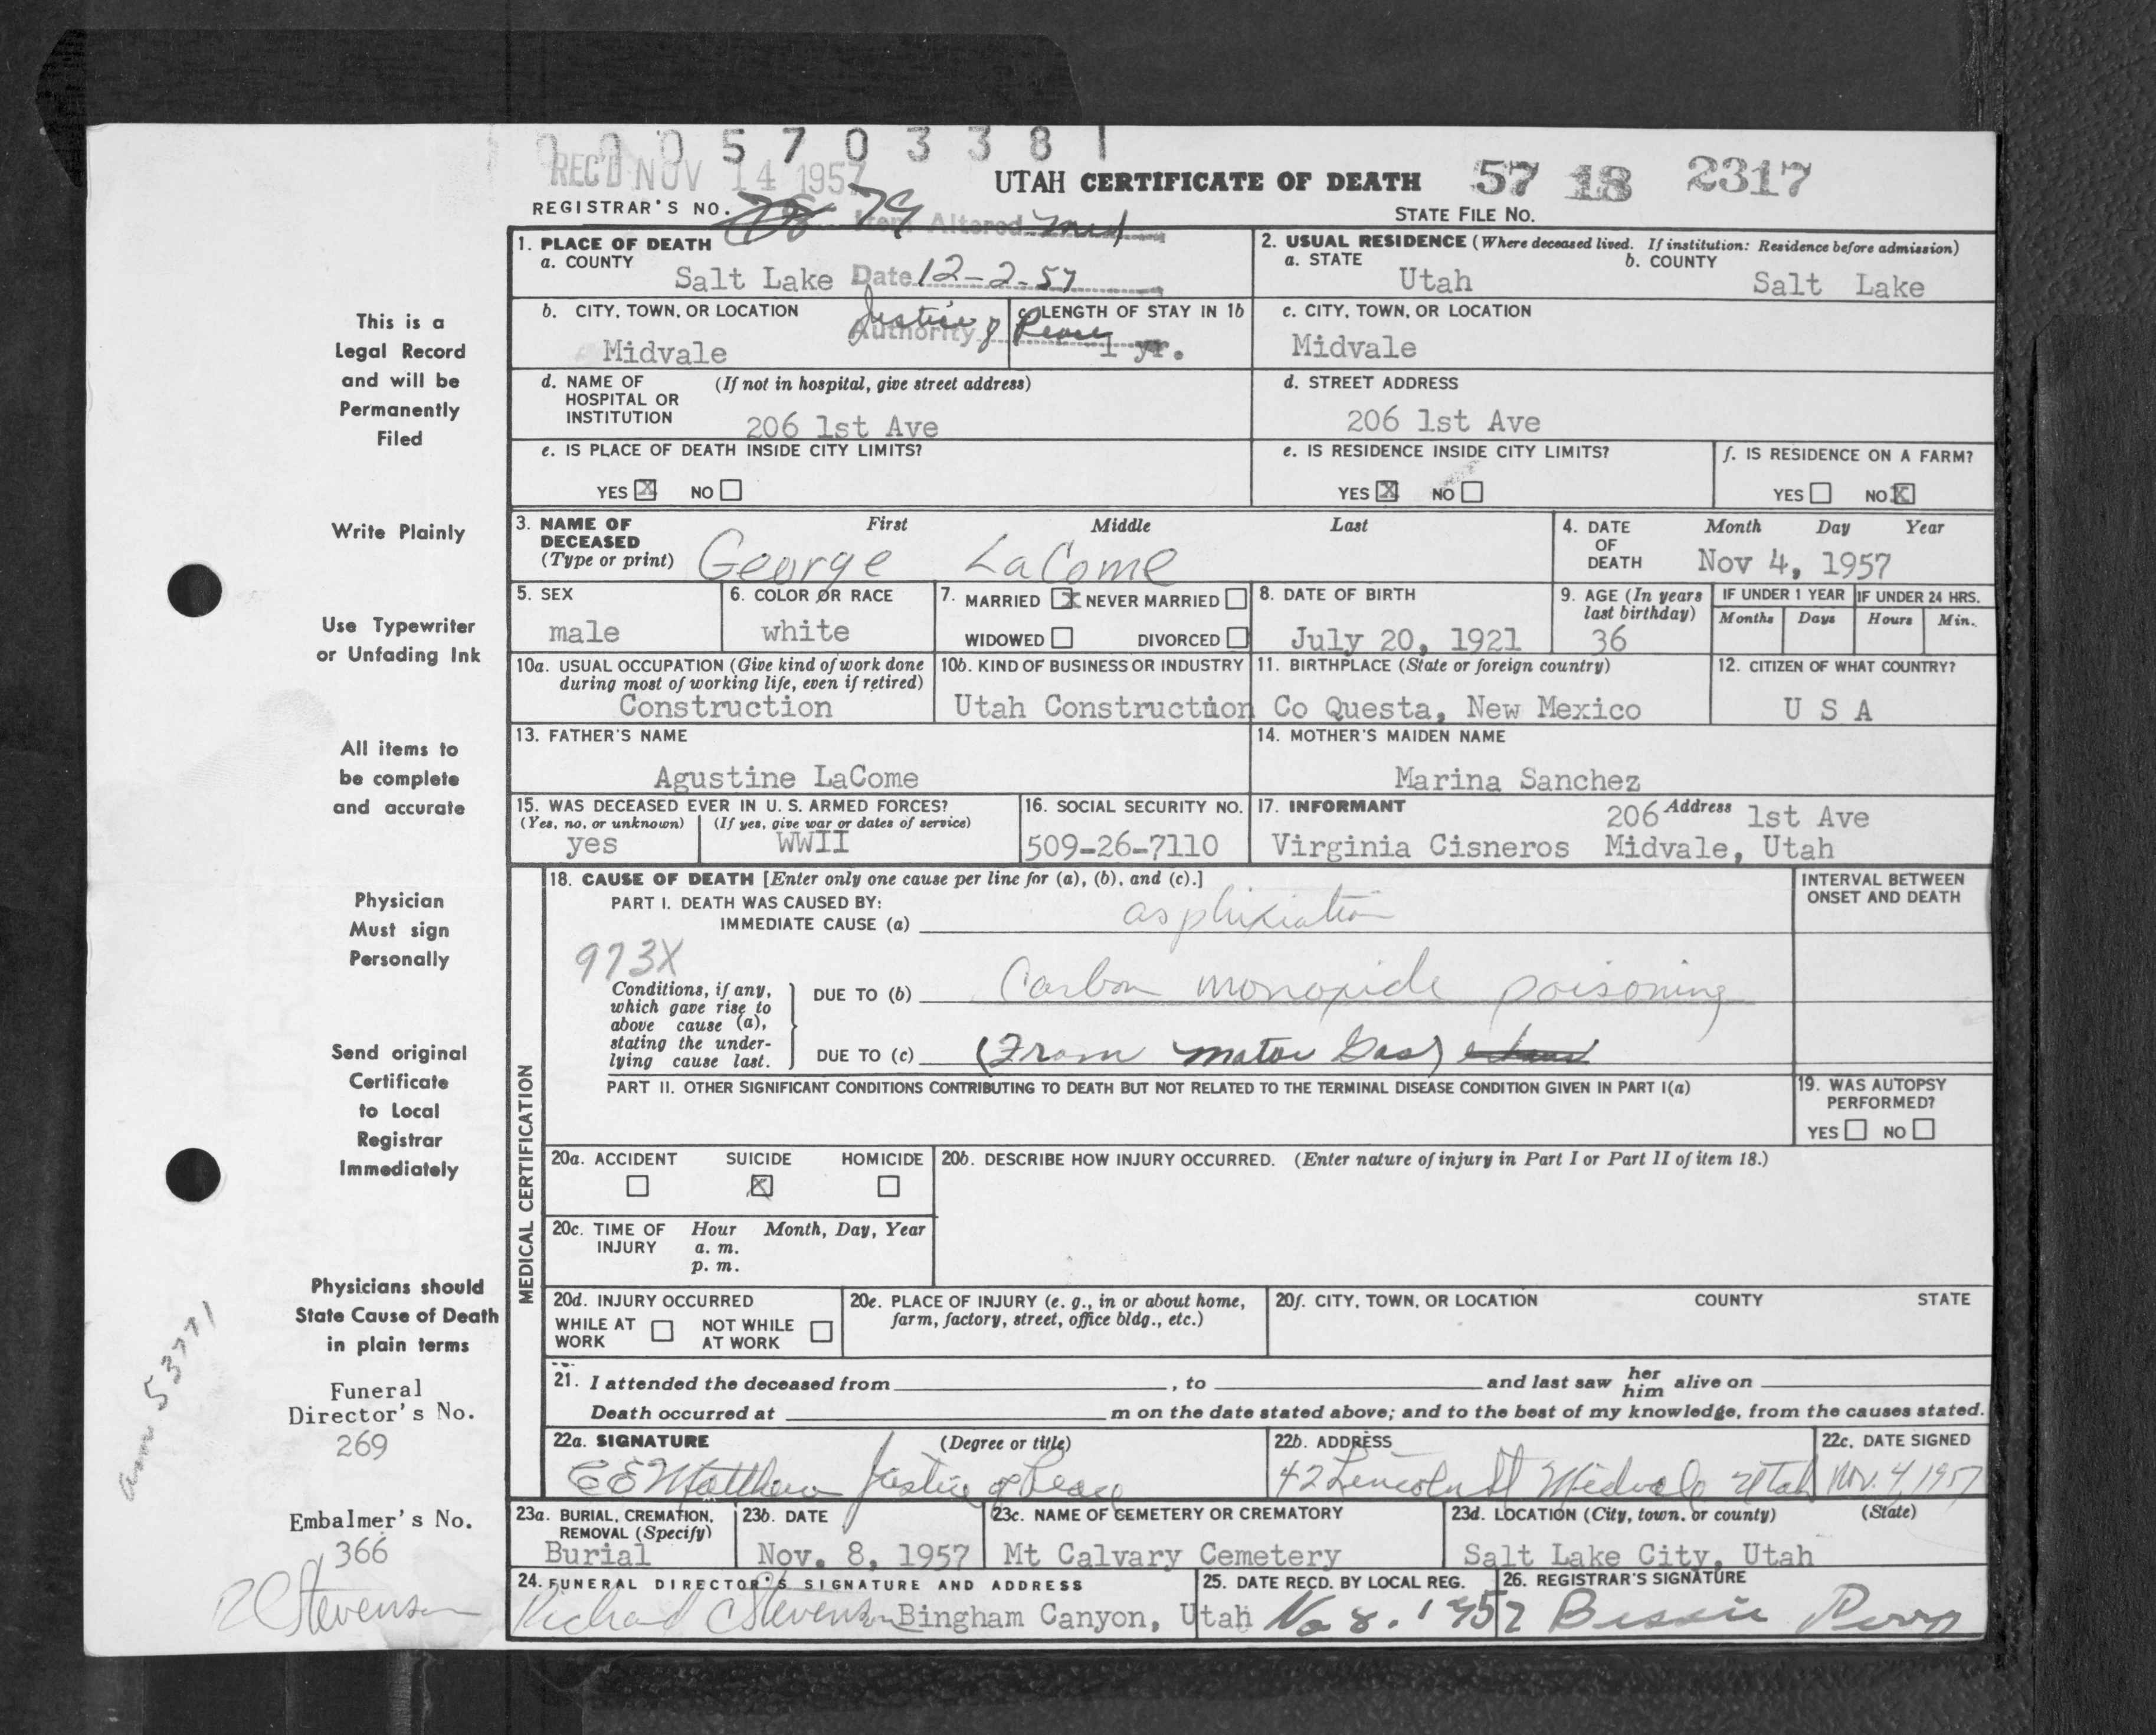 0 0 0 5 7 0 3 3 8 1
REC'D NOV 14 1957
UTAH CERTIFICATE OF DEATH 57 18 2317
REGISTRAR'S NO. 78 79
STATE FILE NO.
Item Altered Med
Date 12-2-57
Authority Justice of Peace
1. PLACE OF DEATH
a. COUNTY
Salt Lake
2. USUAL RESIDENCE (Where deceased lived. If institution: Residence before admission)
a. STATE b. COUNTY
Utah Salt Lake
b. CITY, TOWN, OR LOCATION
Midvale
c. LENGTH OF STAY IN 1b
1 yr.
c. CITY, TOWN, OR LOCATION
Midvale
d. NAME OF HOSPITAL OR INSTITUTION (If not in hospital, give street address)
206 1st Ave
d. STREET ADDRESS
206 1st Ave
e. IS PLACE OF DEATH INSIDE CITY LIMITS?
YES X NO
e. IS RESIDENCE INSIDE CITY LIMITS?
YES X NO
f. IS RESIDENCE ON A FARM?
YES NO X
3. NAME OF DECEASED (Type or print)
First Middle Last
George LaCome
4. DATE OF DEATH
Month Day Year
Nov 4, 1957
5. SEX
male
6. COLOR OR RACE
white
7. MARRIED X NEVER MARRIED
WIDOWED DIVORCED
8. DATE OF BIRTH
July 20, 1921
9. AGE (In years last birthday)
36
IF UNDER 1 YEAR IF UNDER 24 HRS.
Months Days Hours Min.
10a. USUAL OCCUPATION (Give kind of work done during most of working life, even if retired)
Construction
10b. KIND OF BUSINESS OR INDUSTRY
Utah Construction
11. BIRTHPLACE (State or foreign country)
Co Questa, New Mexico
12. CITIZEN OF WHAT COUNTRY?
U S A
13. FATHER'S NAME
Agustine LaCome
14. MOTHER'S MAIDEN NAME
Marina Sanchez
15. WAS DECEASED EVER IN U. S. ARMED FORCES?
(Yes, no, or unknown) (If yes, give war or dates of service)
yes WWII
16. SOCIAL SECURITY NO.
509-26-7110
17. INFORMANT Address
206 1st Ave
Virginia Cisneros Midvale, Utah
MEDICAL CERTIFICATION
18. CAUSE OF DEATH [Enter only one cause per line for (a), (b), and (c).]
PART I. DEATH WAS CAUSED BY:
IMMEDIATE CAUSE (a) asphixiation
INTERVAL BETWEEN ONSET AND DEATH
973X
Conditions, if any, which gave rise to above cause (a), stating the underlying cause last.
DUE TO (b) Carbon monoxide poisoning
DUE TO (c) (From motor Gas)
PART II. OTHER SIGNIFICANT CONDITIONS CONTRIBUTING TO DEATH BUT NOT RELATED TO THE TERMINAL DISEASE CONDITION GIVEN IN PART I(a)
19. WAS AUTOPSY PERFORMED?
YES NO
20a. ACCIDENT SUICIDE HOMICIDE
X
20b. DESCRIBE HOW INJURY OCCURRED. (Enter nature of injury in Part I or Part II of item 18.)
20c. TIME OF INJURY Hour Month, Day, Year
a. m.
p. m.
20d. INJURY OCCURRED
WHILE AT WORK NOT WHILE AT WORK
20e. PLACE OF INJURY (e. g., in or about home, farm, factory, street, office bldg., etc.)
20f. CITY, TOWN, OR LOCATION COUNTY STATE
21. I attended the deceased from , to and last saw her him alive on
Death occurred at m on the date stated above; and to the best of my knowledge, from the causes stated.
22a. SIGNATURE (Degree or title)
E E Matthews Justice of Peace
22b. ADDRESS
42 Lincoln St Midvale Utah
22c. DATE SIGNED
Nov. 4, 1957
23a. BURIAL, CREMATION, REMOVAL (Specify)
Burial
23b. DATE
Nov. 8, 1957
23c. NAME OF CEMETERY OR CREMATORY
Mt Calvary Cemetery
23d. LOCATION (City, town, or county) (State)
Salt Lake City, Utah
24. FUNERAL DIRECTOR'S SIGNATURE AND ADDRESS
Richard C Stevenson Bingham Canyon, Utah
25. DATE RECD. BY LOCAL REG.
No 8. 1957
26. REGISTRAR'S SIGNATURE
Bessie Perry
This is a
Legal Record
and will be
Permanently
Filed
Write Plainly
Use Typewriter
or Unfading Ink
All items to
be complete
and accurate
Physician
Must sign
Personally
Send original
Certificate
to Local
Registrar
Immediately
Physicians should
State Cause of Death
in plain terms
Funeral
Director's No.
269
Embalmer's No.
366
R C Stevenson
53771